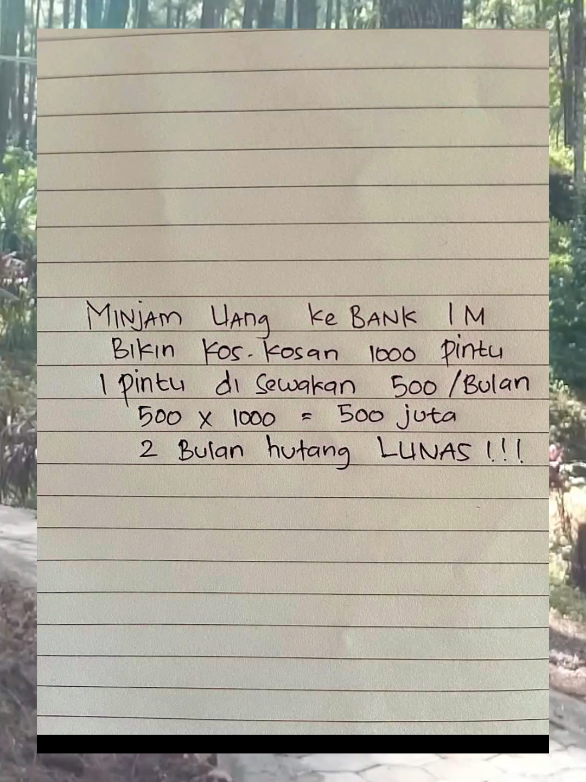 MINJAM UANg ke BANK 1 M
BIKIN Kos-kosan 1000 pintu
1 pintu di sewakan 500 /Bulan
500 x 1000 = 500 juta
2 Bulan hutang LUNAS !!!